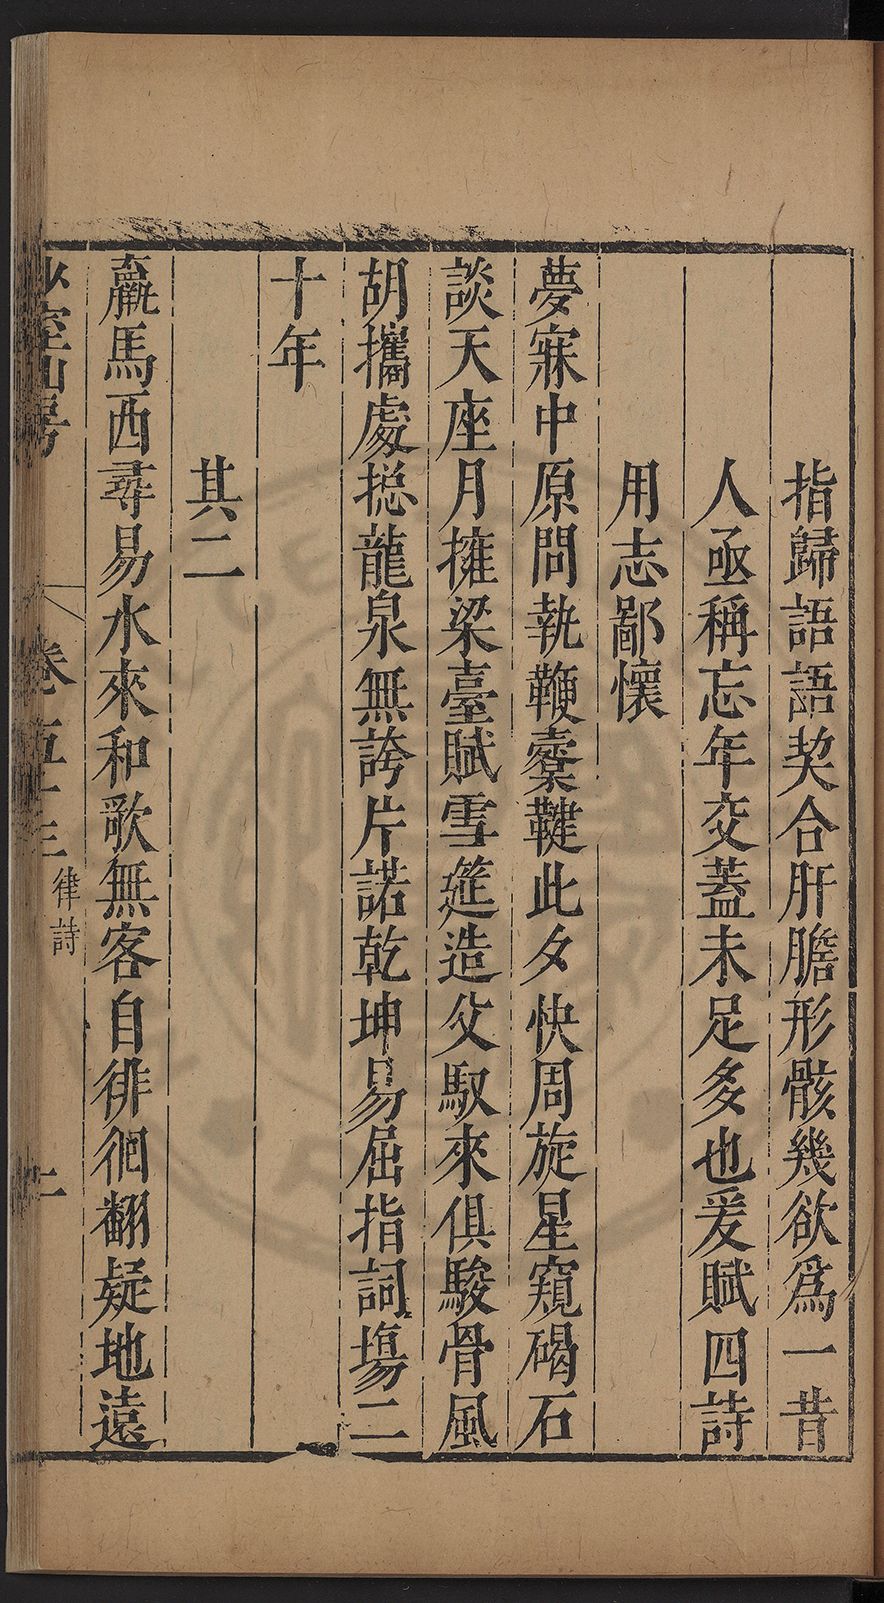 指歸語語契合肝膽形骸幾欲爲一昔
人亟稱忘年交蓋未足多也爰賦四詩
用志鄙懷
夢寐中原問執鞭櫜鞬此夕快周旋星窺碣石
談天座月擁梁臺賦雪筵造父馭來俱駿骨風
胡攜處摠龍泉無誇片諾乾坤易屈指詞塲二
十年
其二
羸馬西尋易水來和歌無客自徘徊翻疑地遠
室山房
卷五十三
律詩